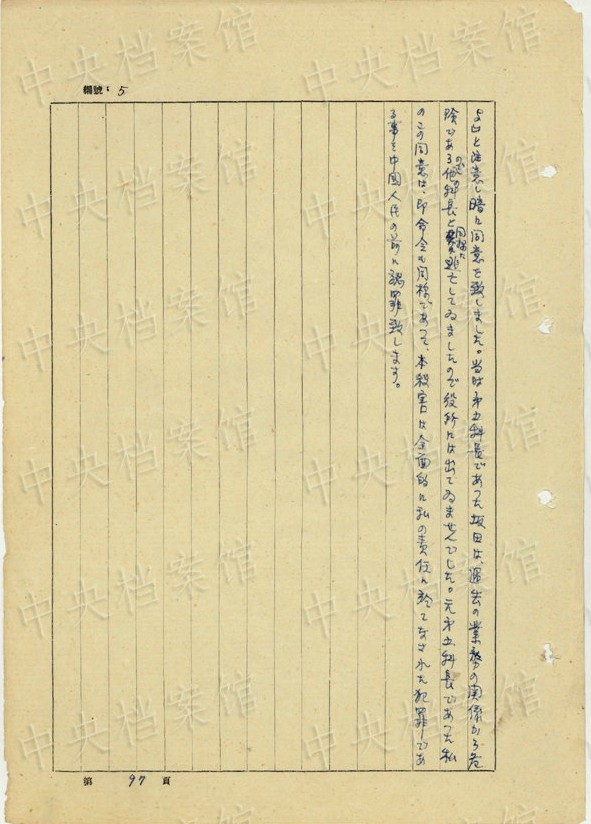 編號：5
よ」と注意し暗に同意を致しました。当時第五科長であつた坂田は、過去の業務の関係から危
険であるのでの他科長と同様に逃亡してゐましたので役所には出てゐませんでした。元第五科長であつた私
のこの同意は、即命令も同様であつて、本殺害は全面的に私の責任に於てなされた犯罪であ
る事を中国人民の前に認罪致します。
第 97 頁
中央档案馆